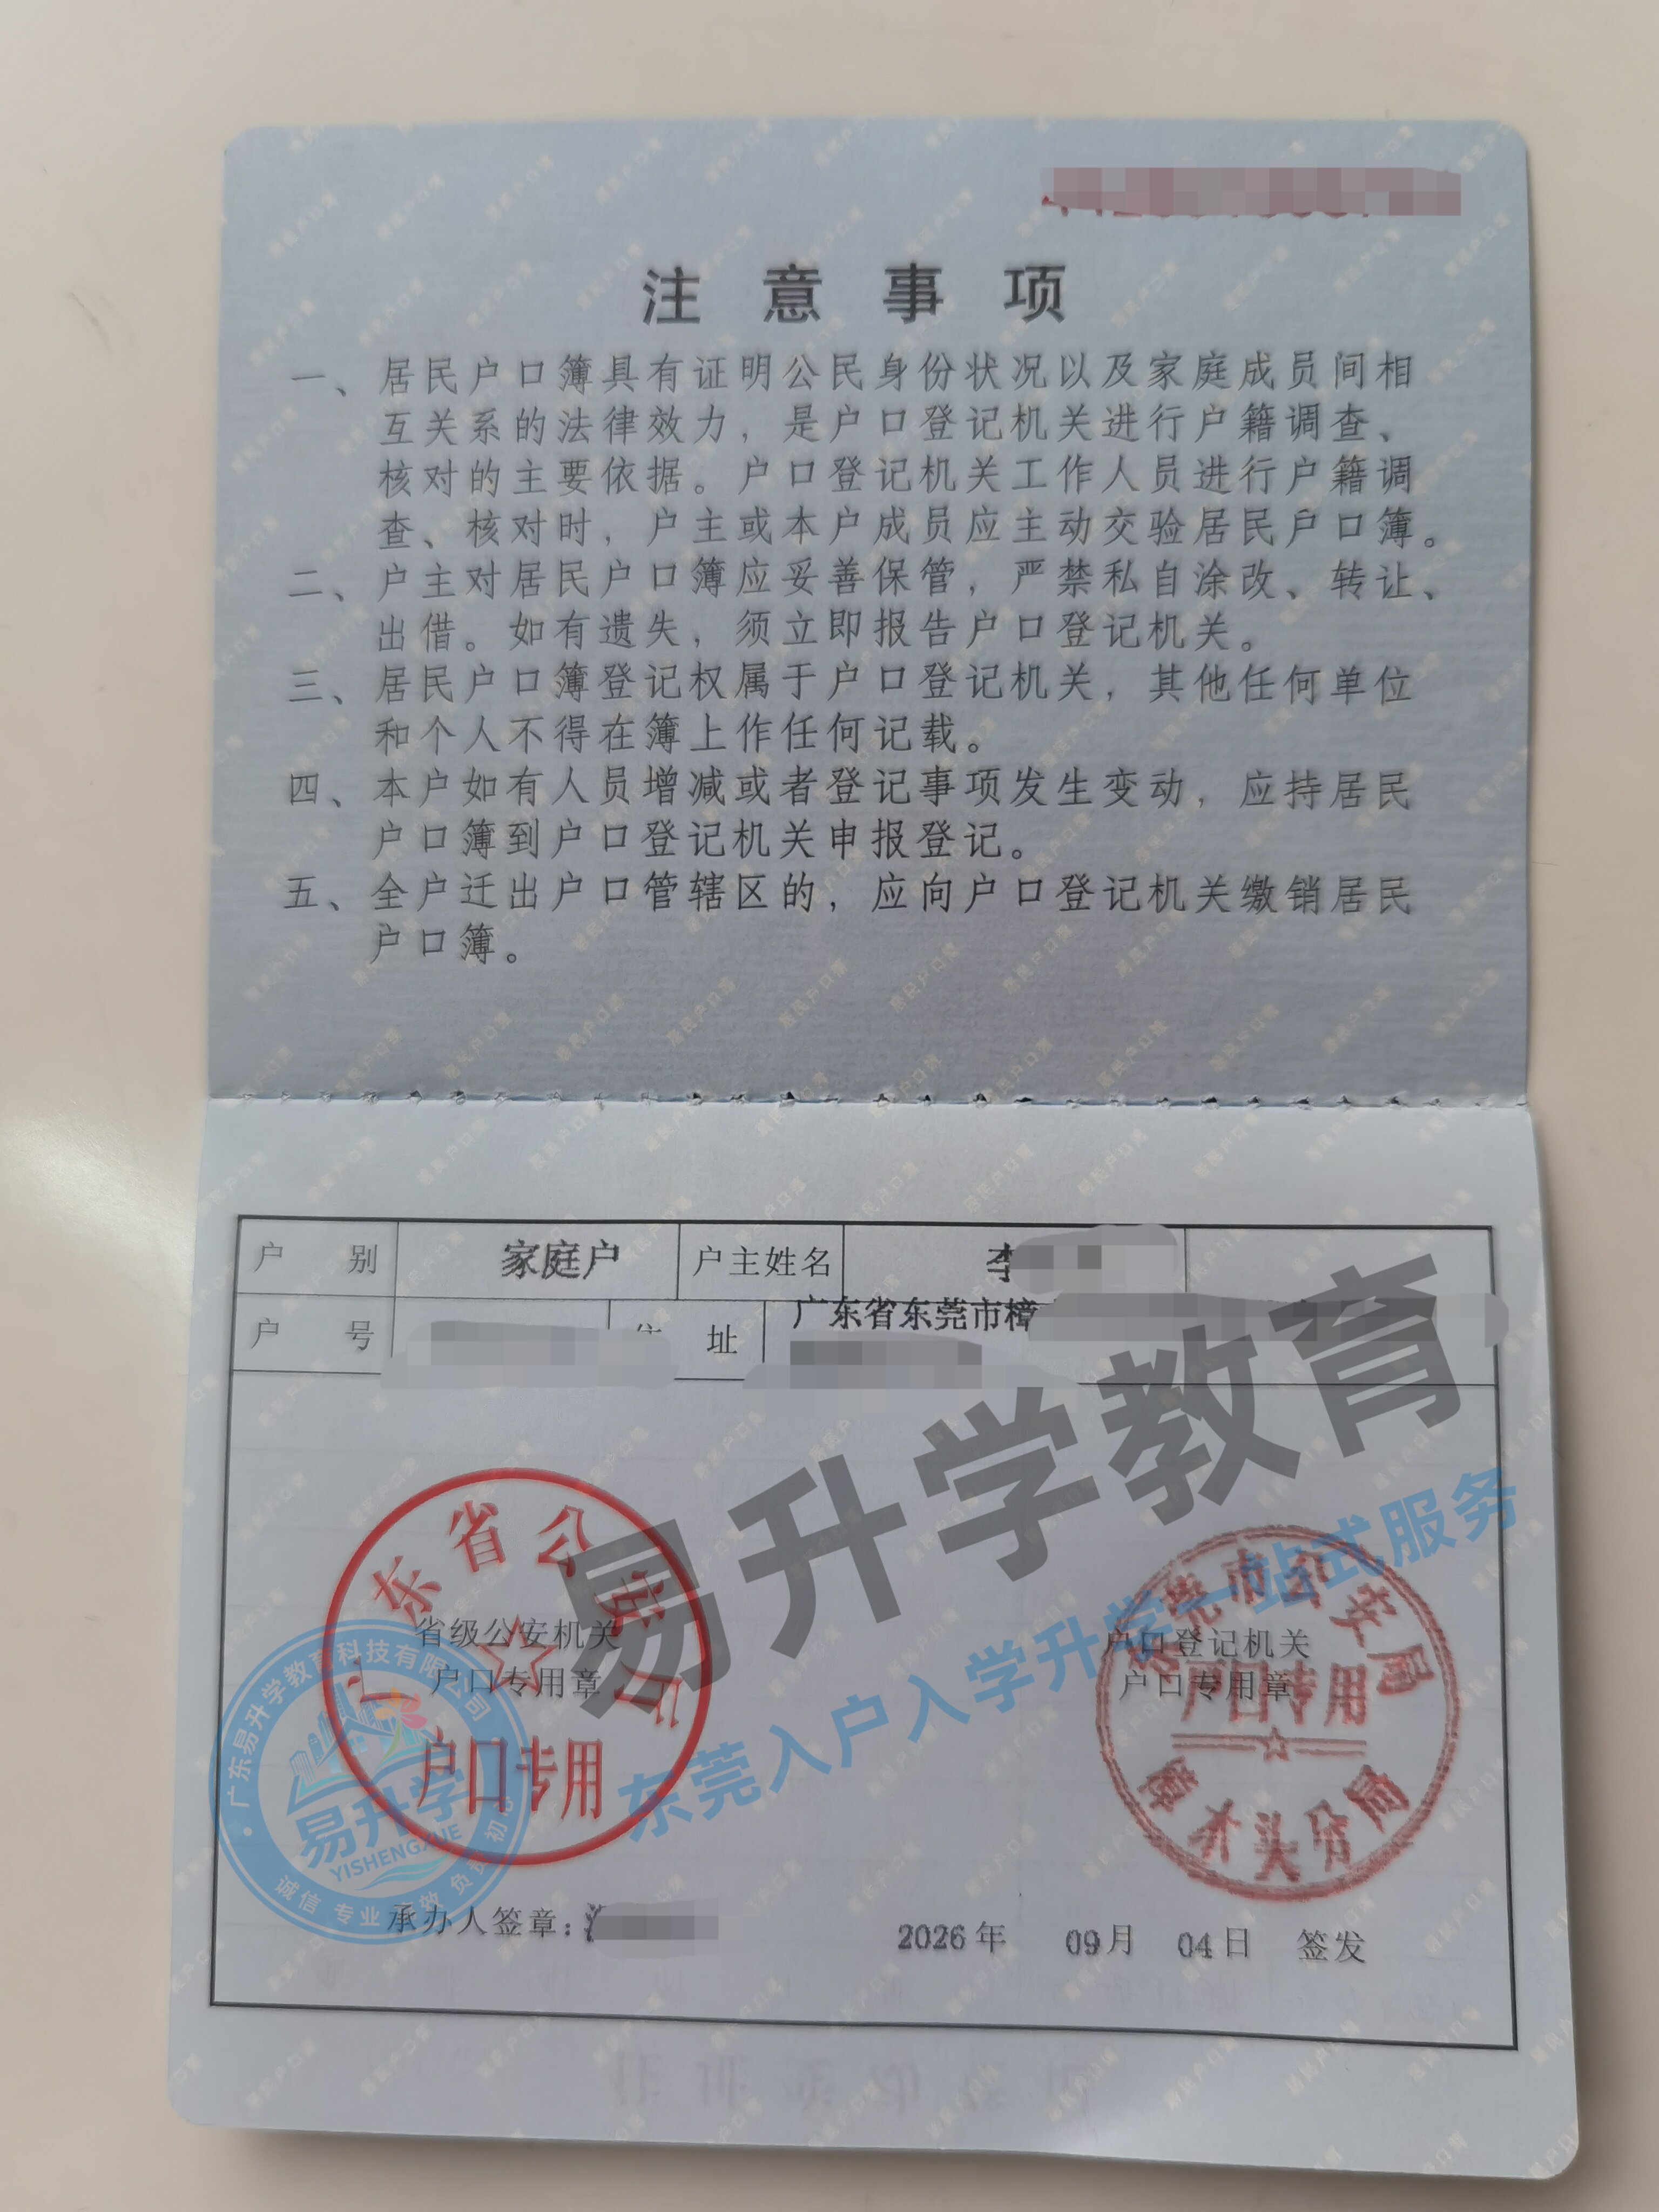 注意事项
一、居民户口簿具有证明公民身份状况以及家庭成员间相
互关系的法律效力，是户口登记机关进行户籍调查、
核对的主要依据。户口登记机关工作人员进行户籍调
查、核对时，户主或本户成员应主动交验居民户口簿。
二、户主对居民户口簿应妥善保管，严禁私自涂改、转让、
出借。如有遗失，须立即报告户口登记机关。
三、居民户口簿登记权属于户口登记机关，其他任何单位
和个人不得在簿上作任何记载。
四、本户如有人员增减或者登记事项发生变动，应持居民
户口簿到户口登记机关申报登记。
五、全户迁出户口管辖区的，应向户口登记机关缴销居民
户口簿。
户别 家庭户 户主姓名 李
户号 住址 广东省东莞市樟
广东省公安厅
省级公安机关
户口专用章
户口专用
东莞市公安局
户口登记机关
户口专用章
户口专用
樟木头分局
易升学教育
东莞入户入学升学一站式服务
广东易升学教育科技有限公司
易升学
YISHENGXUE
诚信 专业 高效 负责 初心
承办人签章：
2026年 09月 04日 签发